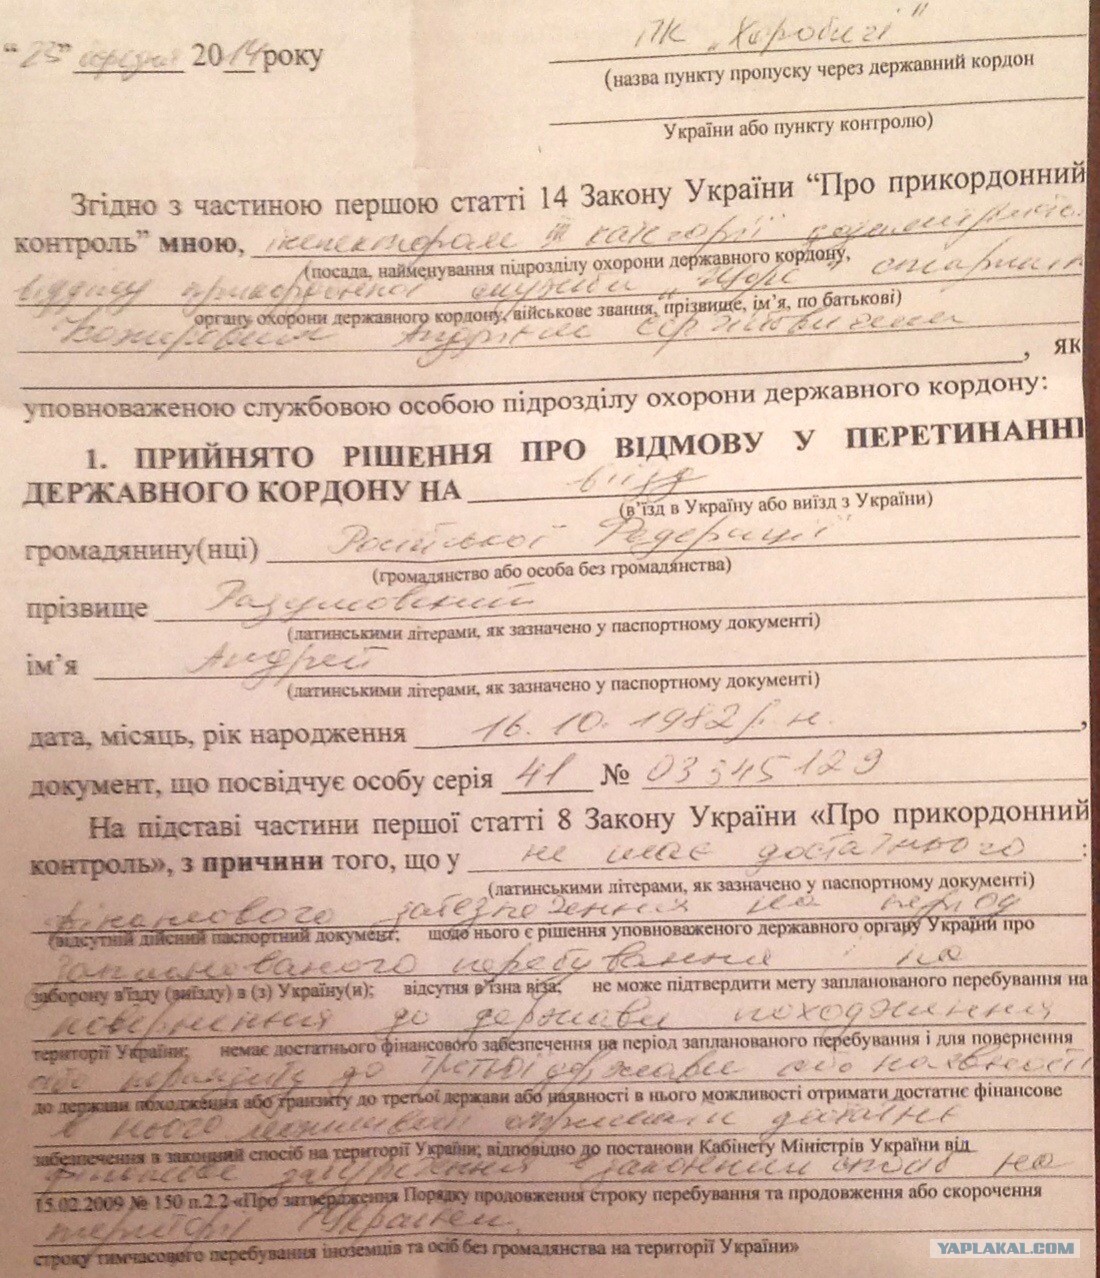 “23” 2014 року
ПК „Хоробичі”
(назва пункту пропуску через державний кордон
України або пункту контролю)
Згідно з частиною першою статті 14 Закону України “Про прикордонний
контроль” мною, інспектором ІІІ категорії
(посада, найменування підрозділу охорони державного кордону,
відділу прикордонної служби „Щорс”
органу охорони державного кордону, військове звання, прізвище, ім’я, по батькові)
Андрієм
, як
уповноваженою службовою особою підрозділу охорони державного кордону:
1. ПРИЙНЯТО РІШЕННЯ ПРО ВІДМОВУ У ПЕРЕТИНАННІ
ДЕРЖАВНОГО КОРДОНУ НА в’їзд
(в’їзд в Україну або виїзд з України)
громадянину(нці) Російської Федерації
(громадянство або особа без громадянства)
прізвище Разумовский
(латинськими літерами, як зазначено у паспортному документі)
ім’я Андрей
(латинськими літерами, як зазначено у паспортному документі)
дата, місяць, рік народження 16.10.1982 р.н. ,
документ, що посвідчує особу серія 41 № 03345129
На підставі частини першої статті 8 Закону України «Про прикордонний
контроль», з причини того, що у не має достатнього :
(латинськими літерами, як зазначено у паспортному документі)
фінансового забезпечення на період
(відсутній дійсний паспортний документ; щодо нього є рішення уповноваженого державного органу України про
запланованого перебування і на
заборону в'їзду (виїзду) в (з) Україну(и); відсутня в’їзна віза; не може підтвердити мету запланованого перебування на
повернення до держави походження
території України; немає достатнього фінансового забезпечення на період запланованого перебування і для повернення
або транзиту до третьої держави або наявності
до держави походження або транзиту до третьої держави або наявності в нього можливості отримати достатнє фінансове
в нього можливості отримати достатнє
забезпечення в законний спосіб на території України; відповідно до постанови Кабінету Міністрів України від
фінансове забезпечення в законний спосіб на
15.02.2009 № 150 п.2.2 «Про затвердження Порядку продовження строку перебування та продовження або скорочення
території України.
строку тимчасового перебування іноземців та осіб без громадянства на території України»
YAPLAKAL.COM